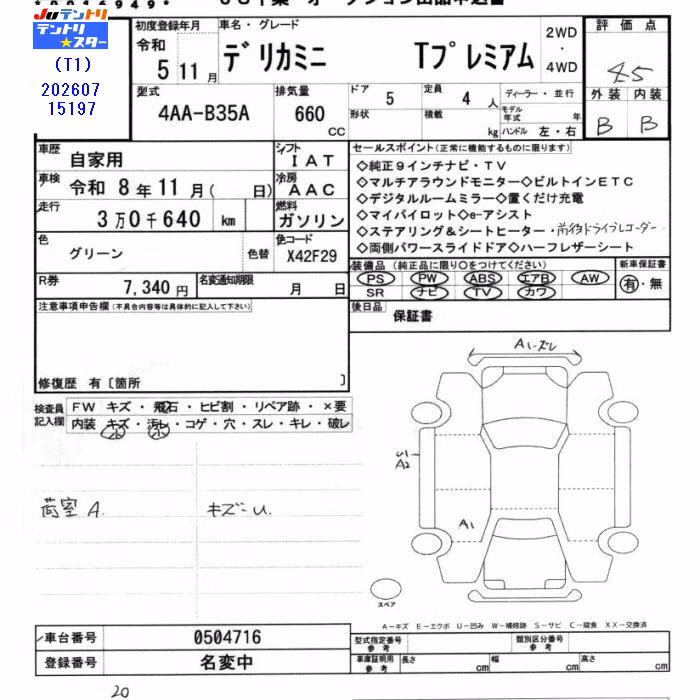 Juテントリ
テントリ★スター
(T1)
202607
15197
初度登録年月
令和
5 11 月
車名・グレード
デリカミニ Tプレミアム
2WD
・
4WD
評価点
4.5
型式
4AA-B35A
排気量
660
CC
ドア
5
定員
4 人
形状
積載
kg
ディーラー・並行
モデル年式 年
ハンドル 左・右
外装 内装
B B
車歴
自家用
シフト
IAT
車検
令和 8 年 11 月( 日)
冷房
AAC
走行
3 万 0 千 640 km
燃料
ガソリン
色
グリーン
色替
色コード
X42F29
R券
7,340 円
名変通知期限
月 日
セールスポイント(正常に機能するものに限ります)
◇純正9インチナビ・TV
◇マルチアラウンドモニター◇ビルトインETC
◇デジタルルームミラー◇置くだけ充電
◇マイパイロット◇e-アシスト
◇ステアリング&シートヒーター・前後ドライブレコーダー
◇両側パワースライドドア◇ハーフレザーシート
装備品(純正品に限り○をつけてください)
PS PW ABS エアB AW
SR ナビ TV カワ
新車保証書
有・無
後日品
保証書
注意事項申告欄(不具合内容等は具体的に記入して下さい)
修復歴 有〔箇所 〕
検査員
記入欄
FW キズ・飛石・ヒビ割・リペア跡・×要
内装 キズ・汚レ・コゲ・穴・スレ・キレ・破レ
小 小
荷室 A キズ-U
A1-ズレ
S1
A2
A1
スペア
A-キズ E-エクボ U-凹み W-補修跡 S-サビ C-腐食 XX-交換済
車台番号
0504716
登録番号
名変中
型式指定番号
参考
類別区分番号
参考
車庫証明用
参考
長さ cm 幅 cm 高さ cm
20